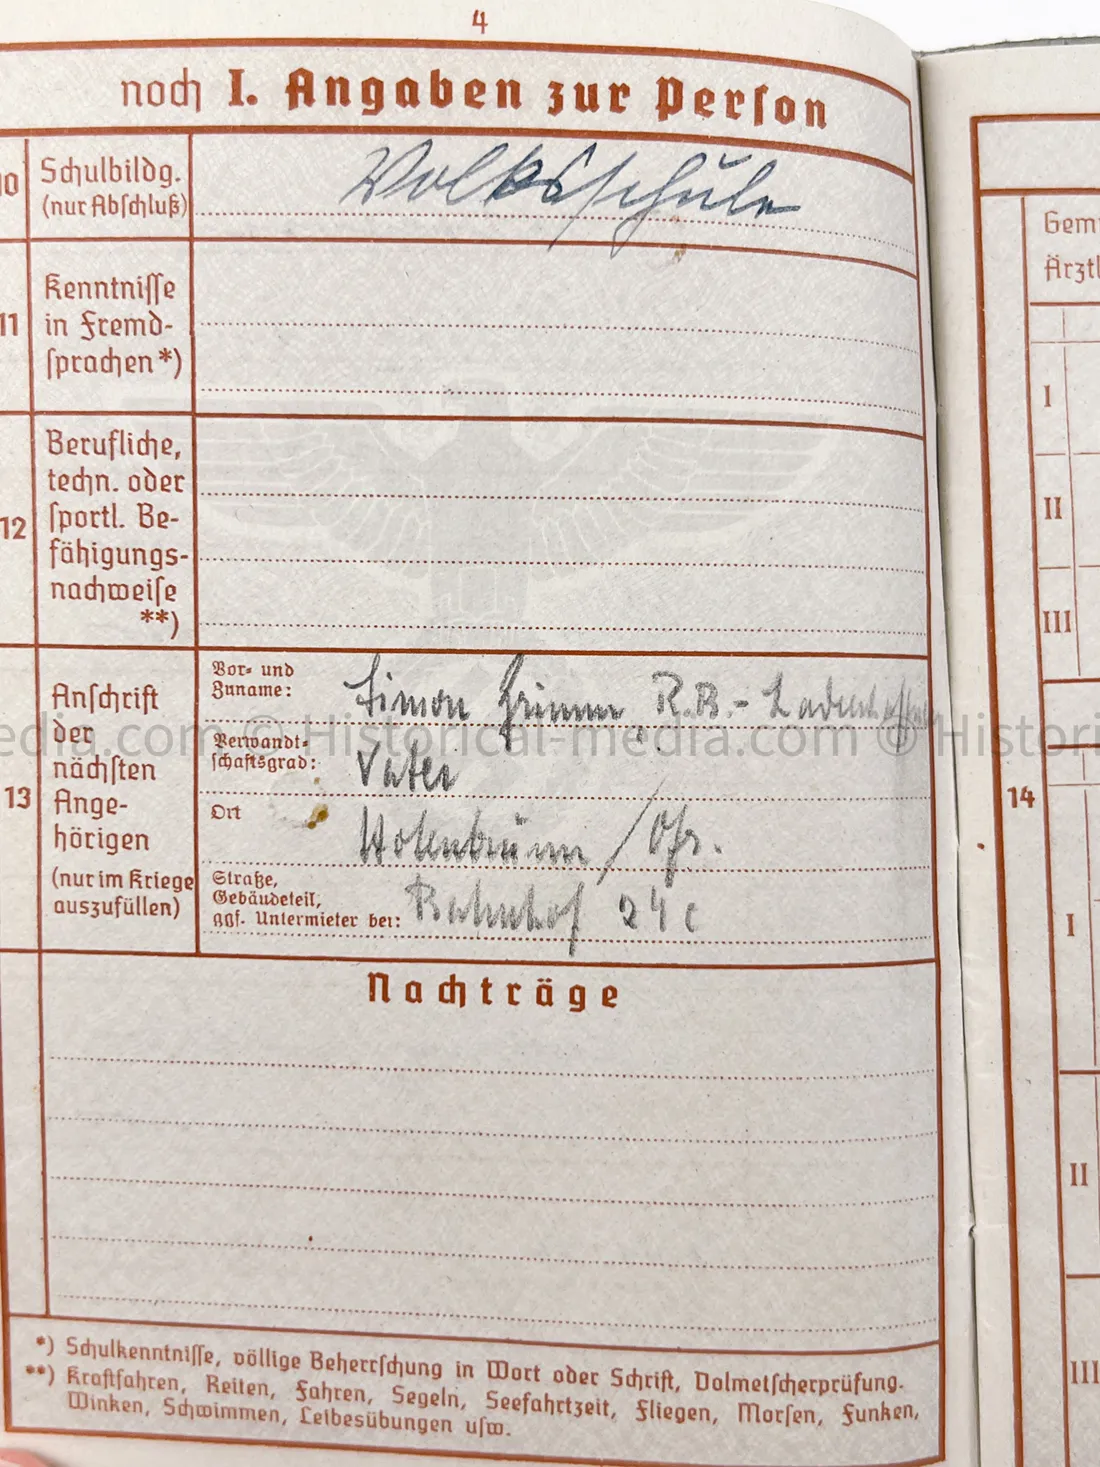 4
noch I. Angaben zur Person
10
Schulbildg.
(nur Abschluß)
Volksschule
11
Kenntnisse
in Fremd-
sprachen *)
12
Berufliche,
techn. oder
sportl. Be-
fähigungs-
nachweise
**)
13
Anschrift
der
nächsten
Ange-
hörigen
(nur im Kriege
auszufüllen)
Vor- und
Zuname:
Simon Grimm R.B.-
Verwandt-
schaftsgrad:
Vater
Ort
/ Thr.
Straße,
Gebäudeteil,
ggf. Untermieter bei:
Bahnhof 24 c
Nachträge
*) Schulkenntnisse, völlige Beherrschung in Wort oder Schrift, Dolmetscherprüfung.
**) Kraftfahren, Reiten, Fahren, Segeln, Seefahrtzeit, Fliegen, Morsen, Funken,
Winken, Schwimmen, Leibesübungen usw.
edia.com © Historical-media.com © Histori
Gem
Ärztl
I
II
III
14
I
II
III